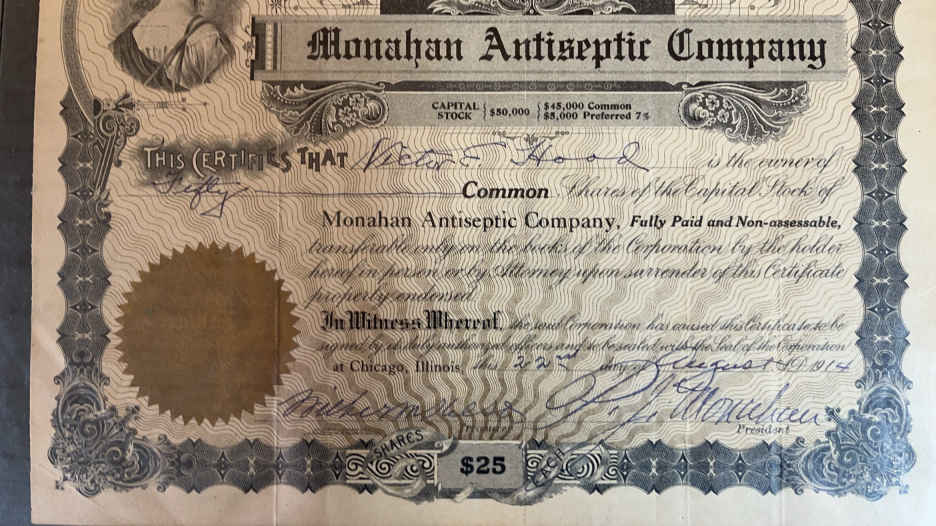 Monahan Antiseptic Company
CAPITAL STOCK $50,000 $45,000 Common
$5,000 Preferred 7%
THIS CERTIFIES THAT Victor F Hood is the owner of
Fifty Common Shares of the Capital Stock of
Monahan Antiseptic Company, Fully Paid and Non-assessable,
transferable only on the books of the Corporation by the holder
hereof in person or by Attorney upon surrender of this Certificate
properly endorsed.
In Witness Whereof, the said Corporation has caused this Certificate to be
signed by its duly authorized officers and to be sealed with the Seal of the Corporation
at Chicago, Illinois, this 22nd day of August A.D. 1914
Monahan
President
SHARES $25